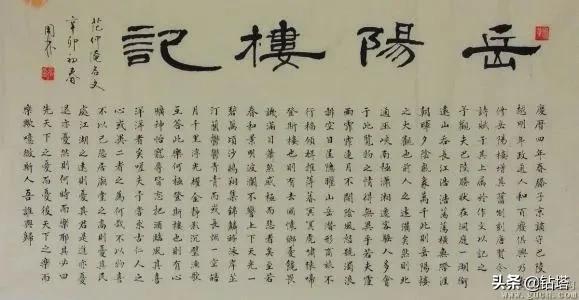 岳陽樓記
范仲淹名文
辛卯初春
慶曆四年春滕子京謫守巴陵
越明年政通人和百廢俱興乃
修岳陽樓增其舊制刻唐賢今
詩賦于其上屬於作文以記之
予觀夫巴陵勝狀在洞庭一湖銜
遠山吞長江浩浩蕩蕩橫無際涯
朝暉夕陰氣象萬千此則岳陽樓
之大觀也前人之述備矣然則北
通巫峽南極瀟湘遷客騷人多會
于此覽物之情得無異乎若夫霪
雨霏霏連月不開陰風怒號濁浪
排空日星隱曜山岳潛形商旅不
行檣傾楫摧薄暮冥冥虎嘯猿啼
登斯樓也則有去國懷鄉憂讒畏
譏滿目蕭然感極而悲者矣至若
春和景明波瀾不驚上下天光一
碧萬頃沙鷗翔集錦鱗游泳岸芷
汀蘭鬱鬱青青而或長煙一空皓
月千里浮光躍金靜影沉璧漁歌
互答此樂何極登斯樓也則有心
曠神怡寵辱皆忘把酒臨風其喜
洋洋者矣嗟夫予嘗求古仁人之
心或異二者之為何哉不以物喜
不以己悲居廟堂之高則憂其民
處江湖之遠則憂其君是進亦憂
退亦憂然則何時而樂耶其必曰
先天下之憂而憂後天下之樂而
樂歟噫微斯人吾誰與歸
头条 @钻塔